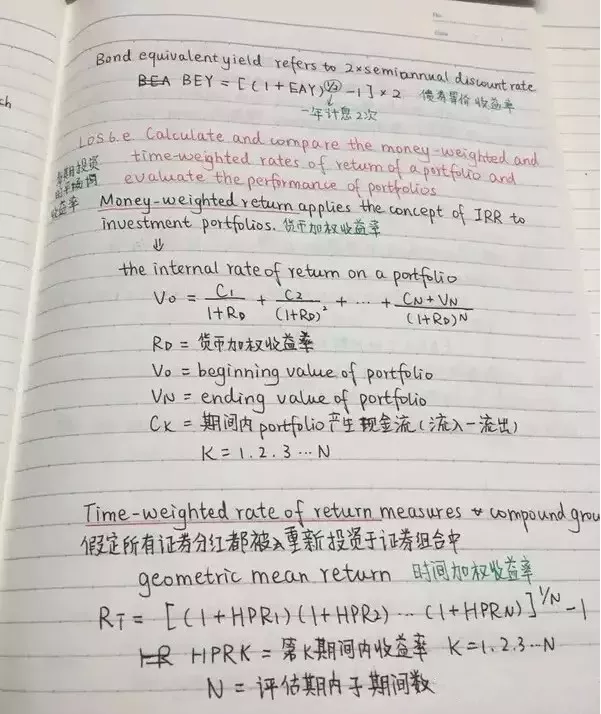 Bond equivalent yield refers to 2×semiannual discount rate
BEY = [(1+EAY)^(1/2) -1]×2 债券等价收益率
一年计息2次
LOS 6.e Calculate and compare the money-weighted and
time-weighted rates of return of a portfolio and
evaluate the performance of portfolios
收益率
Money-weighted return applies the concept of IRR to
investment portfolios. 货币加权收益率
⇓
the internal rate of return on a portfolio
V0 = C1/(1+RD) + C2/(1+RD)² + ··· + (CN+VN)/(1+RD)^N
RD = 货币加权收益率
V0 = beginning value of portfolio
VN = ending value of portfolio
CK = 期间内portfolio产生现金流(流入一流出)
K = 1.2.3 ··· N
Time-weighted rate of return measures compound grou
假定所有证券分红都被重新投资于证券组合中
geometric mean return 时间加权收益率
RT = [(1+HPR1)(1+HPR2) ··· (1+HPRN)]^1/N -1
HPRK = 第K期间内收益率 K=1.2.3···N
N = 评估期内子期间数